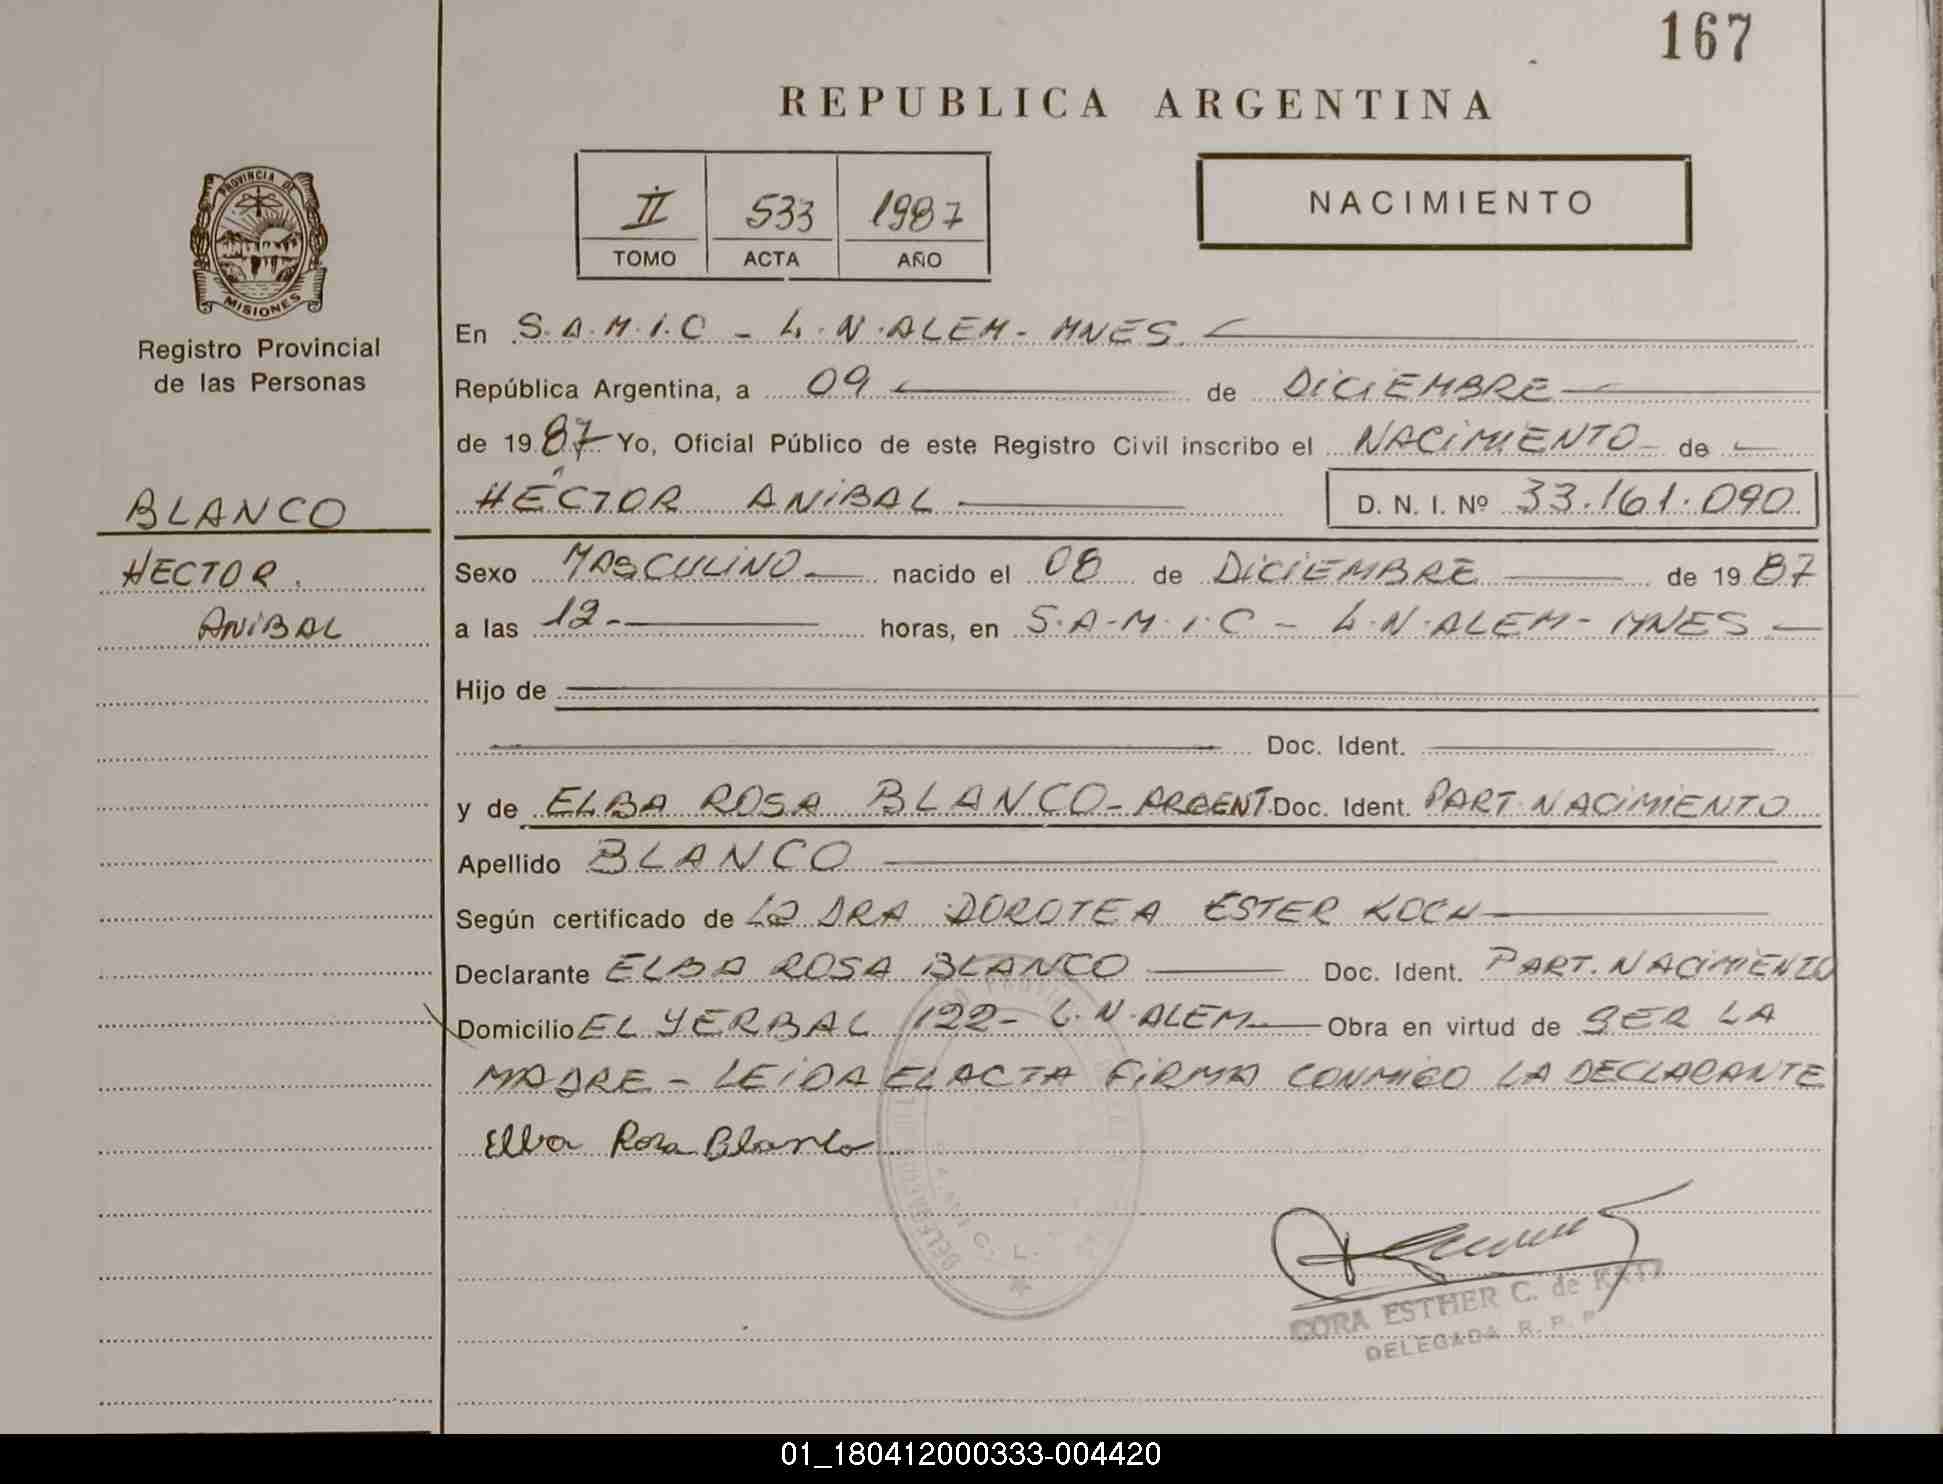 167
REPUBLICA ARGENTINA
II 533 1987
TOMO ACTA AÑO
NACIMIENTO
PROVINCIA DE
MISIONES
Registro Provincial
de las Personas
BLANCO
HECTOR
ANIBAL
En S.A.M.I.C - L.N.ALEM - MNES.
República Argentina, a 09 de DICIEMBRE
de 1987 Yo, Oficial Público de este Registro Civil inscribo el NACIMIENTO de
HÉCTOR ANIBAL D. N. I. Nº 33.161.090
Sexo MASCULINO nacido el 08 de DICIEMBRE de 1987
a las 12 horas, en S.A.M.I.C - L.N.ALEM - MNES
Hijo de
Doc. Ident.
y de ELBA ROSA BLANCO - ARGENT. Doc. Ident. PART. NACIMIENTO
Apellido BLANCO
Según certificado de LA DRA DOROTEA ESTER KOCH
Declarante ELBA ROSA BLANCO Doc. Ident. PART. NACIMIENTO
Domicilio EL YERBAL 122 - L.N.ALEM Obra en virtud de SER LA
MADRE - LEIDA EL ACTA FIRMA CONMIGO LA DECLARANTE
Elba Rosa Blanco
CORA ESTHER C. de KATZ
DELEGADA R. P. P.
01_180412000333-004420